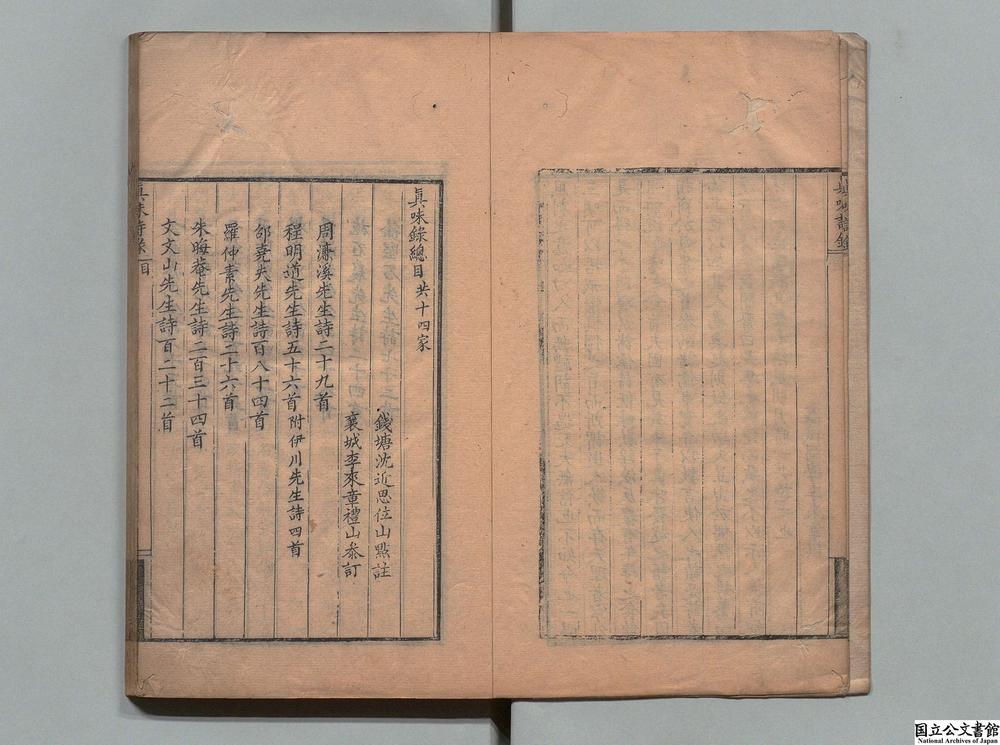 真味詩錄
真味錄總目 共十四家
錢塘沈近思位山㸃註
襄城李來章禮山叅訂
周濂溪先生詩二十九首
程明道先生詩五十六首 附伊川先生詩四首
邵堯夫先生詩百八十四首
羅仲素先生詩二十六首
朱晦菴先生詩二百三十四首
文文山先生詩百二十二首
真味詩錄 目
国立公文書館
National Archives of Japan